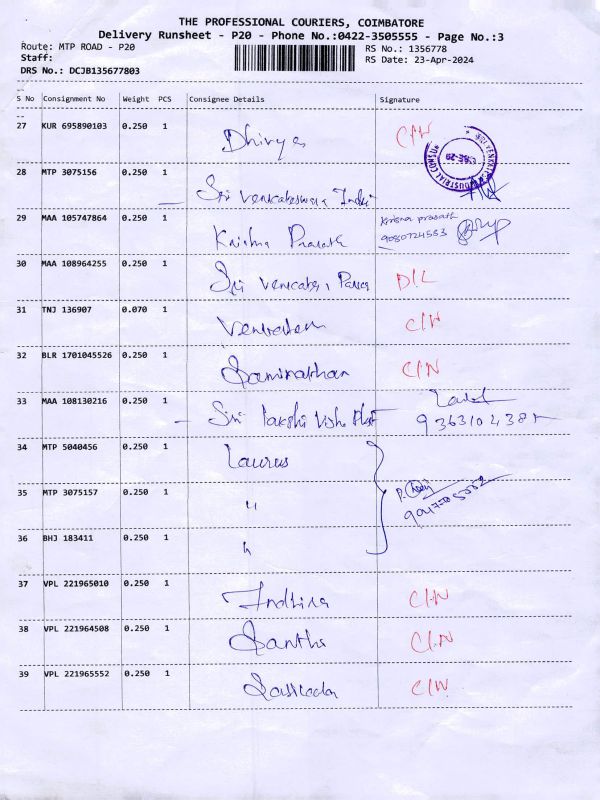 THE PROFESSIONAL COURIERS, COIMBATORE
Delivery Runsheet - P20 - Phone No.:0422-3505555 - Page No.:3
Route: MTP ROAD - P20 RS No.: 1356778
Staff: RS Date: 23-Apr-2024
DRS No.: DCJB135677803
S No Consignment No Weight PCS Consignee Details Signature
27 KUR 695890103 0.250 1 Dhivya C/N
28 MTP 3075156 0.250 1 Sri Venkateswara Indu
29 MAA 105747864 0.250 1 Krishna Prasath Krishna prasath
9080724553
30 MAA 108964255 0.250 1 Sri D/L
31 TNJ 136907 0.070 1 C/N
32 BLR 1701045526 0.250 1 C/N
33 MAA 108130216 0.250 1 Sri
34 MTP 5040456 0.250 1 Laurus
35 MTP 3075157 0.250 1 "
36 BHJ 183411 0.250 1 "
37 VPL 221965010 0.250 1 Indhira C/N
38 VPL 221964508 0.250 1 Santhi C/N
39 VPL 221965552 0.250 1 C/N